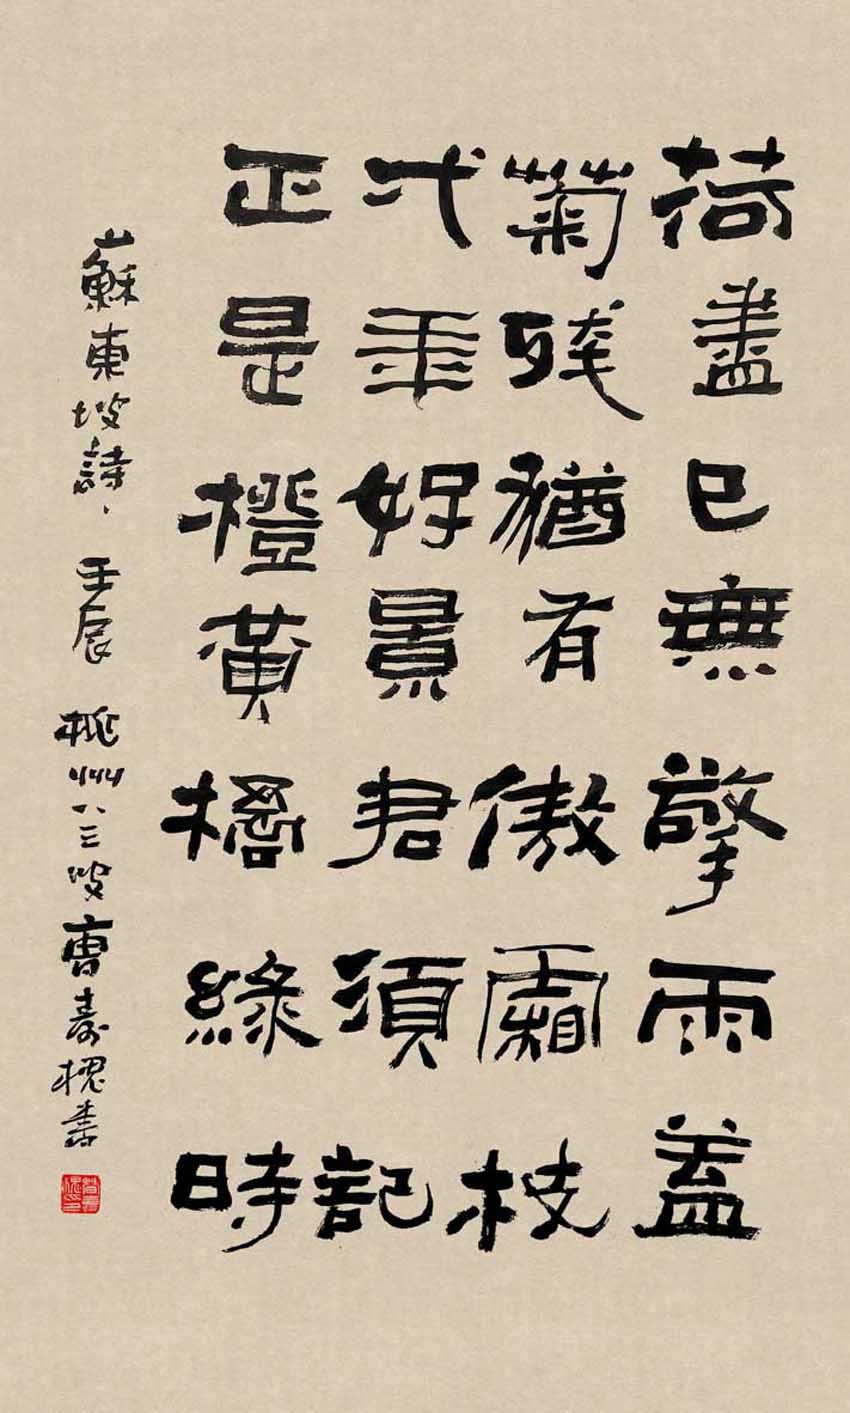 荷盡已無擎雨盖
菊残猶有傲霜枝
弌年好景君須記
正是橙黄橘緑時
蘇東坡詩、壬辰 桃州八三叟曹壽槐書